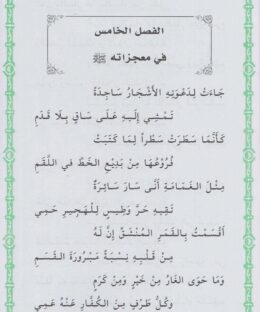 الفصل الخامس
في معجزاته ﷺ
جَاءَتْ لِدَعْوَتِهِ الأَشْجَارُ سَاجِدَةً
تَمْشِي إِلَيْهِ عَلَى سَاقٍ بِلَا قَدَمِ
كَأَنَّمَا سَطَرَتْ سَطْراً لِمَا كَتَبَتْ
فُرُوعُهَا مِنْ بَدِيعِ الخَطِّ في اللَّقَمِ
مِثْلَ الغَمَامَةِ أَنَّى سَارَ سَائِرَةً
تَقِيهِ حَرَّ وَطِيسٍ لِلْهَجِيرِ حَمِي
أَقْسَمْتُ بِالقَمَرِ المُنْشَقِّ إِنَّ لَهُ
مِنْ قَلْبِهِ نِسْبَةً مَبْرُورَةَ القَسَمِ
وَمَا حَوَى الغَارُ مِنْ خَيْرٍ وَمِنْ كَرَمٍ
وَكُلُّ طَرْفٍ مِنَ الكُفَّارِ عَنْهُ عَمِي